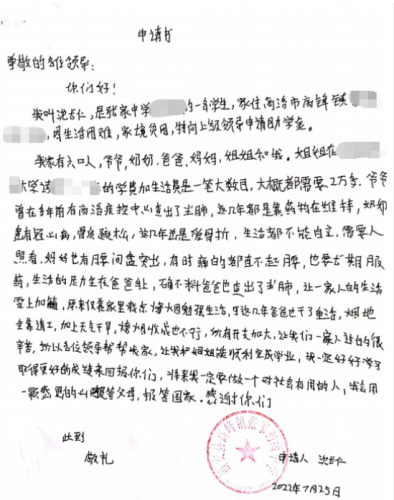 申请书
尊敬的各位领导:
你们好!
我叫沈 仁,是张家中学 的一名学生,家住商洛市 镇
,因生活困难,家境贫困,特向上级领导申请助学金。
我家有六口人,爷爷,奶奶,爸爸,妈妈,姐姐和我。姐姐在
大学 的学费加生活费是一笔大数目,大概都需要2万多.爷爷
曾在多年前在商洛疾控中心查出了尘肺,这几年都是靠药物在维持,奶奶
患有冠心病,骨质疏松,这几年总是骨折,生活都不能自立,需要人
照看.妈妈也有腰间盘突出,有时痛的都直不起腰,也要长期服
药,生活的压力全在爸爸身上,确不料爸爸也查出了尘肺,让一家人的生活
雪上加霜,原来仅靠家里栽点烤烟勉强生活,可这几年爸爸也干了重活,烟地
全靠请工,加上天气干旱,烤烟收成也不行,所有开支加大,让我们一家人过的很
辛苦,所以各位领导帮帮我家,让我和姐姐能顺利完成学业,我一定好好学习
取得更好的成绩来回报你们,将来我一定要做一个对社会有用的人,我会用
一颗感恩的心 父母,报答国家.感谢你们
此致
敬礼
申请人 沈 仁
2022年7月25日